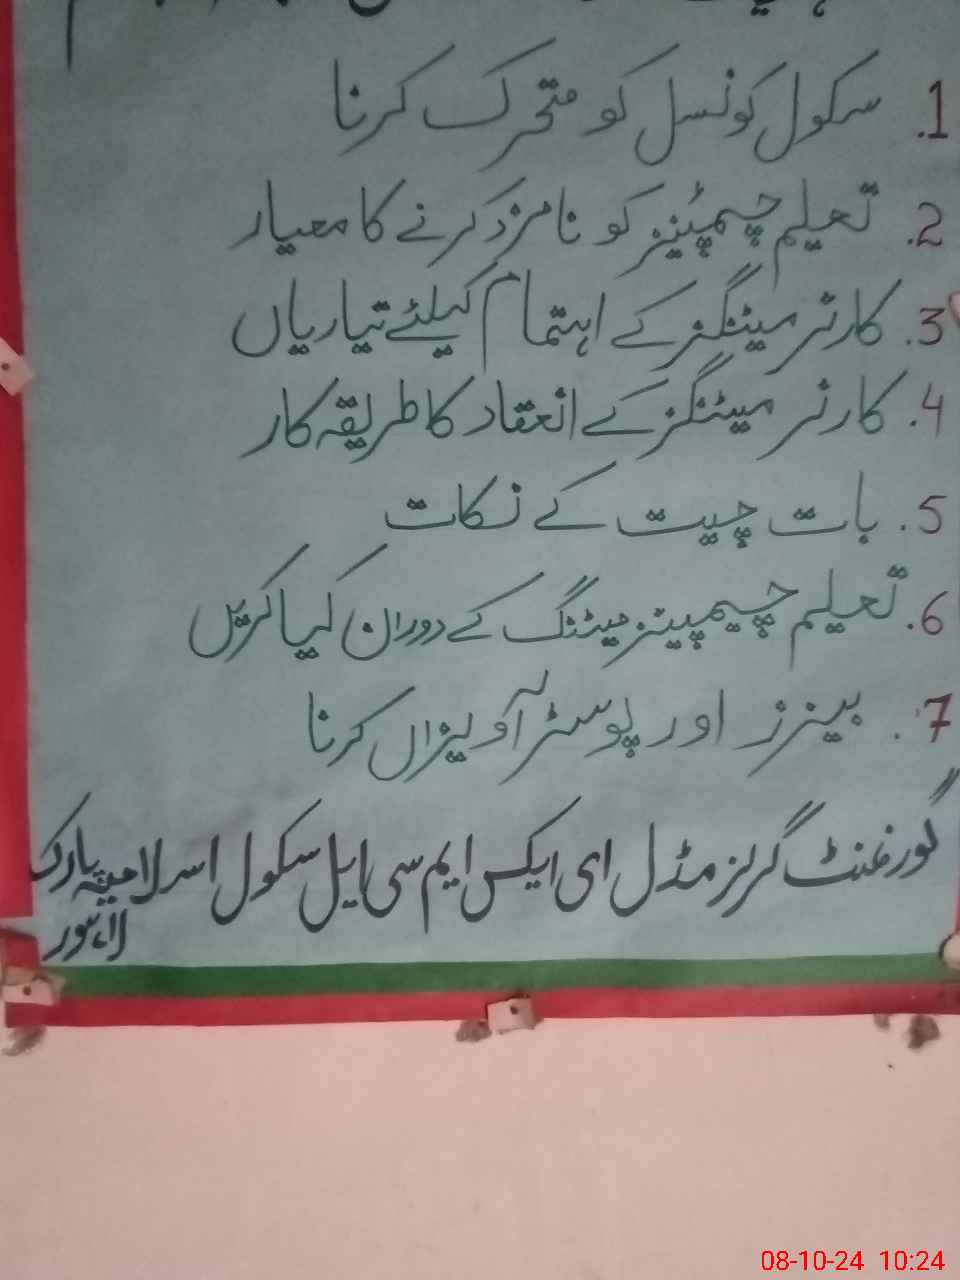 1. سکول کونسل کو متحرک کرنا
2. تعلیم چیمپئنیز کو نامزد کرنے کا معیار
3. کارنر میٹنگز کے اہتمام کیلئے تیاریاں
4. کارنر میٹنگز کے انعقاد کا طریقہ کار
5. بات چیت کے نکات
6. تعلیم چیمپینز میٹنگ کے دوران کیا کریں
7. بینرز اور پوسٹر آویزاں کرنا
گورنمنٹ گرلز مڈل ای ایکس ایم سی ایل سکول اسلامیہ پارک
لاہور
08-10-24 10:24